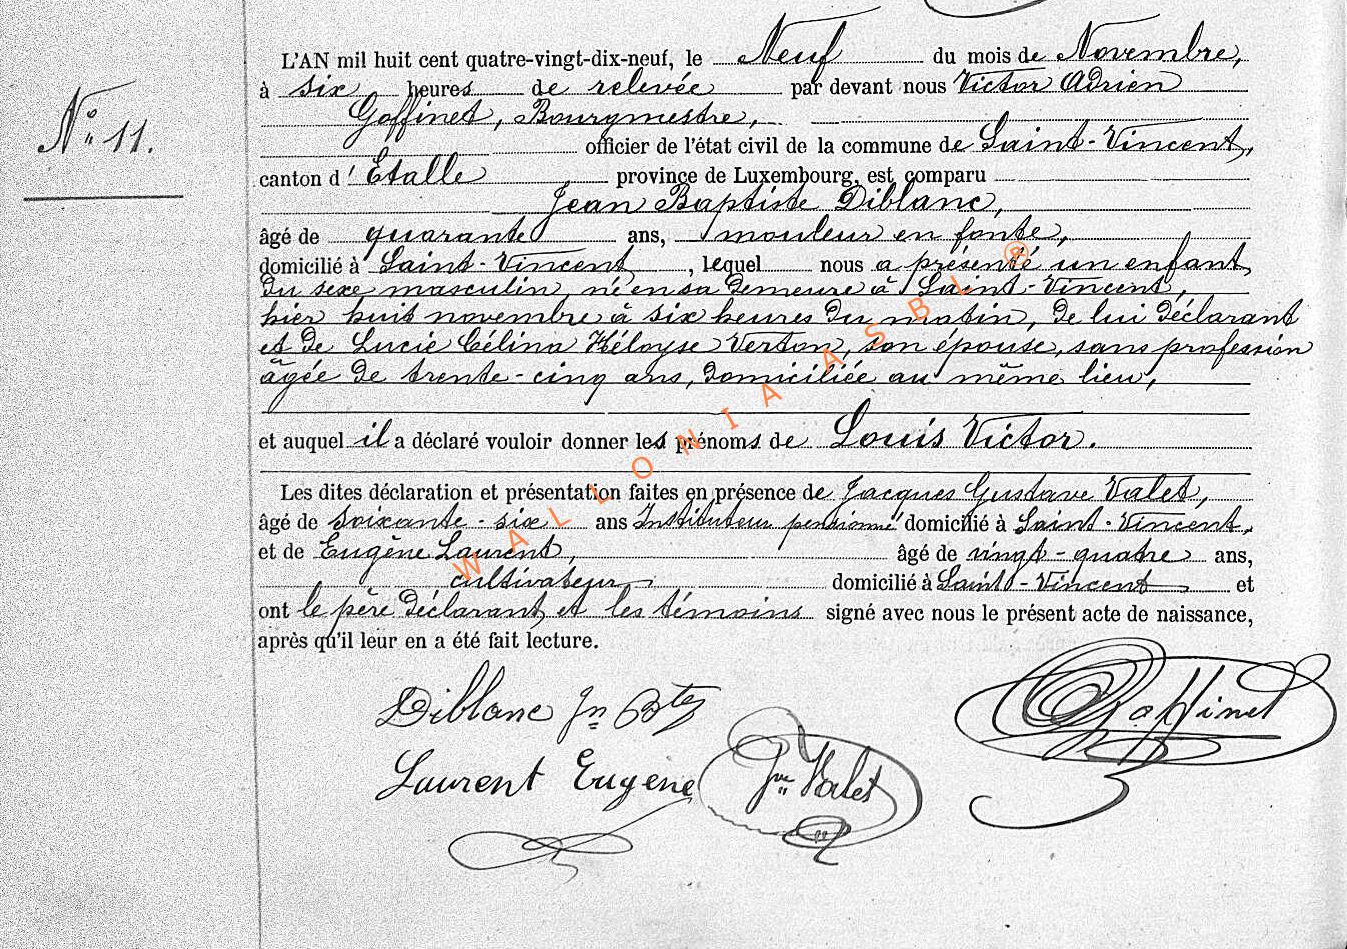 L'AN mil huit cent quatre-vingt-dix-neuf, le Neuf du mois de Novembre,
à six heures de relevée par devant nous Victor Adrien
N° 11.
Goffinet, Bourgmestre,
officier de l'état civil de la commune de Saint-Vincent,
canton d'Etalle province de Luxembourg, est comparu
Jean Baptiste Diblanc,
âgé de quarante ans, mouleur en fonte,
domicilié à Saint-Vincent, lequel nous a présenté un enfant
du sexe masculin, né en sa demeure à Saint-Vincent,
hier huit novembre à six heures du matin, de lui déclarant
et de Lucie Célina Héloyse Verton, son épouse, sans profession
âgée de trente-cinq ans, domiciliée au même lieu,
et auquel il a déclaré vouloir donner les prénoms de Louis Victor.
Les dites déclaration et présentation faites en présence de Jacques Gustave Valet,
âgé de soixante-six ans Instituteur pensionné domicilié à Saint-Vincent,
et de Eugène Laurent, âgé de vingt-quatre ans,
cultivateur domicilié à Saint-Vincent et
ont le père déclarant et les témoins signé avec nous le présent acte de naissance,
après qu'il leur en a été fait lecture.
Diblanc Jn Bte
Goffinet
Laurent Eugène
Valet
WALLONIA ASBL ®